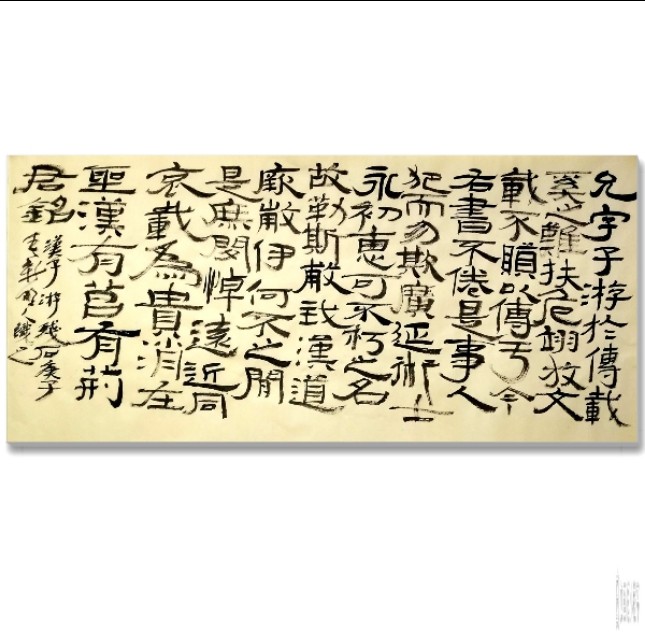 允字子游於傳載
之難扶危翊放文
載不隕以傳于今
右書不倦是事人
犯而勿欺廣延術士
永初惠可不朽之名
故勒斯敵我漢道
厥敵伊何不之開
是無閔悼遠近同
哀載為貴消在
聖漢有莒有荊
君銘
漢子游殘石庚子
人